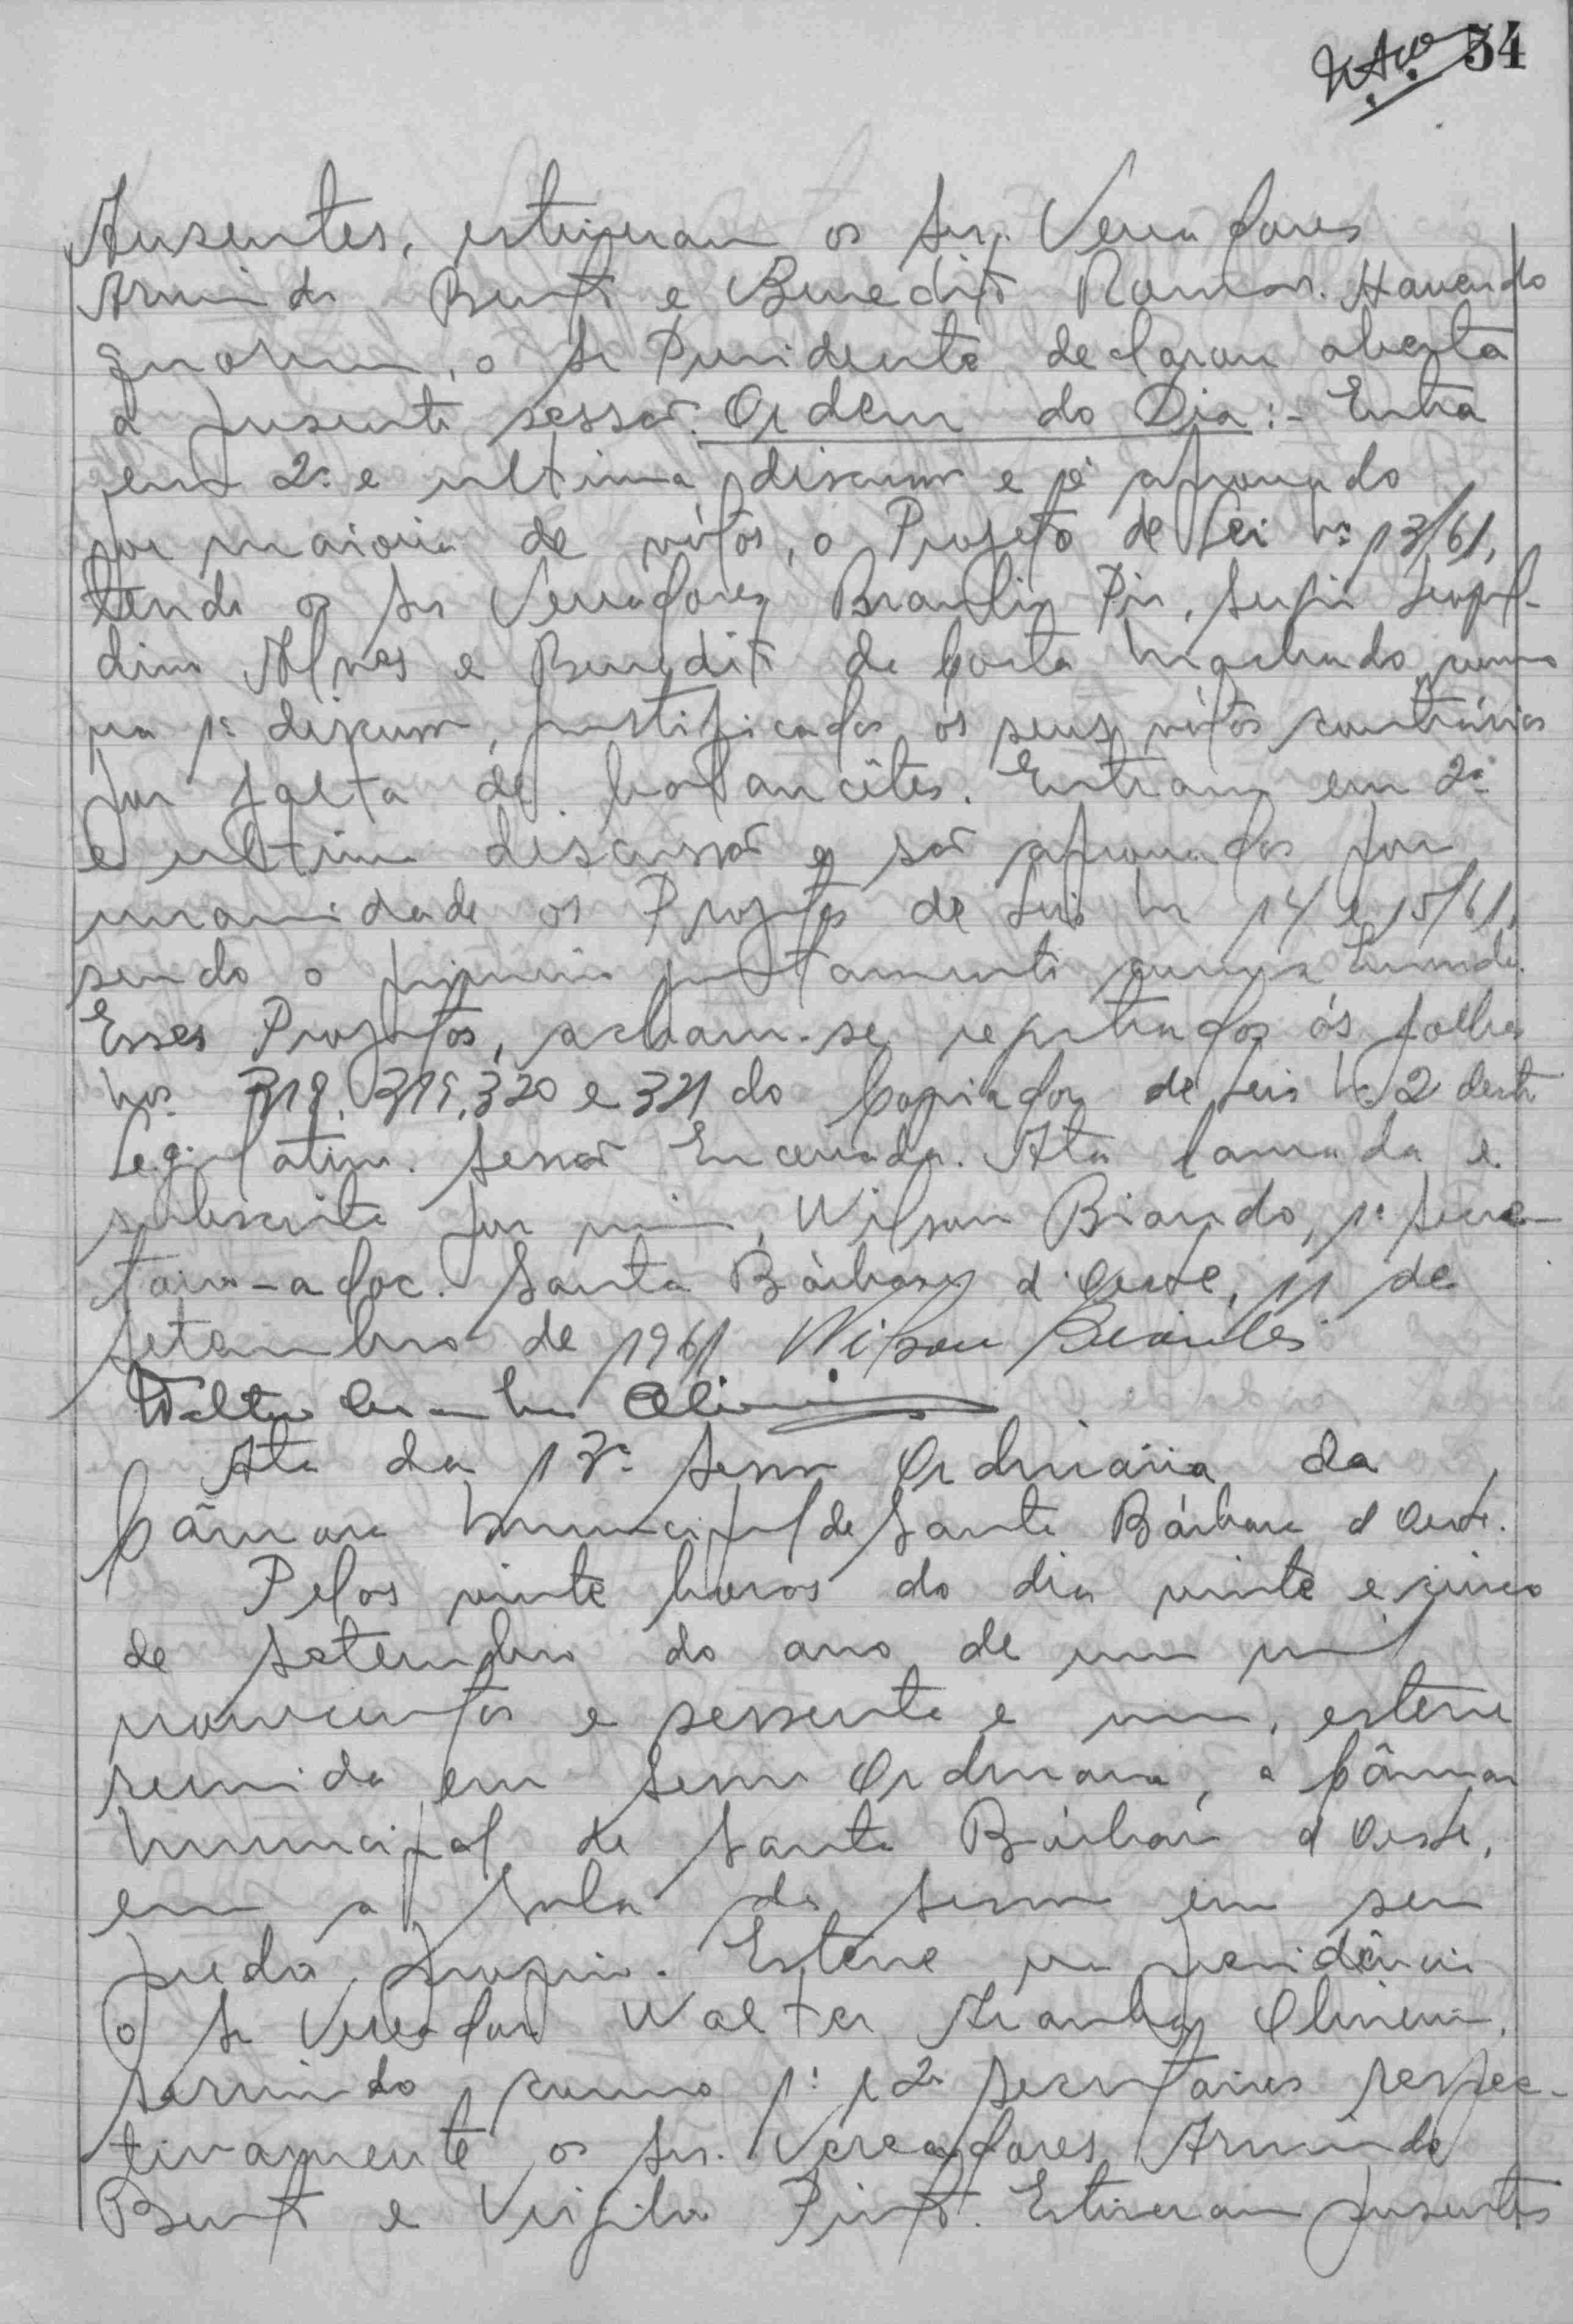 54
Ausentes, estiveram os Srs. Vereadores
Armindo Bento e Benedito Ramos. Havendo
quorum, o Sr Presidente declarou aberta
a presente sessão. Ordem do Dia:- Entra
em 2ª e ultima discussão e é aprovado
por maioria de vótos, o Projeto de Lei nº 13/61,
tendo os Srs Vereadores Braulio Pio, Leopol-
dino Alves e Benedito da Costa Machado, como
na 1ª discussão, justificados os seus vótos contrários
por falta de balancêtes. Entram em 2ª
e ultima discussão e são aprovados por
unanimidade os Projetos de Leis ns 14 e 15/61,
sendo o primeiro juntamente com a Emenda.
Esses Projetos, acham-se registrados ás folhas
nos. 318, 319, 320 e 321 do Copiador de Leis nº 2 deste
Legislativo. Sessão Encerrada. Ata lavrada e
subscrita por mim, Wilson Biando, 1º Secre-
tario-adoc. Santa Bárbara d'Oeste, 11 de
Setembro de 1961 Wilson
Walter Aranha Oliveira
Ata da 13ª Sessão Ordinária da
Câmara Municipal de Santa Bárbara d'Oeste.
Pelas vinte horas do dia vinte e cinco
de Setembro do ano de um mil
novecentos e sessenta e um, esteve
reunida em Sessão Ordinaria, a Câmara
Municipal de Santa Bárbara d'Oeste,
em a Sala de Sessão em seu
predio proprio. Esteve na presidência
o Sr Vereador Walter Aranha Oliveira,
servindo como 1º e 2º Secretários respec-
tivamente os Srs. Vereadores Armindo
Bento e Virgilio Pinto. Estiveram presentes